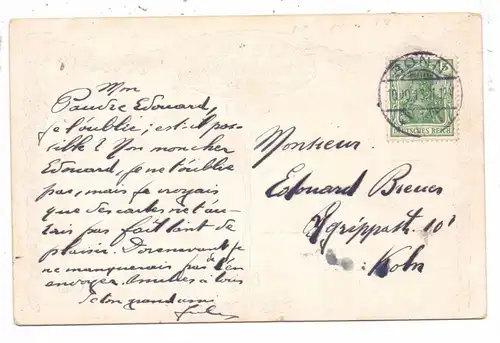 Mon
Pauvre Edouard,
je t'oublie; est-il pos-
sible? Non mon cher
Edouard, je ne t'oublie
pas, mais je croyais
que des cartes ne t'au-
rais pas fait tant de
plaisir. Dorénavant je
ne manquerais pas de t'en
envoyer. Amitiés à tous
Ton grand ami
Monsieur
Edouard Breuer
Agrippast. 101
Köln
BONN
DEUTSCHES REICH